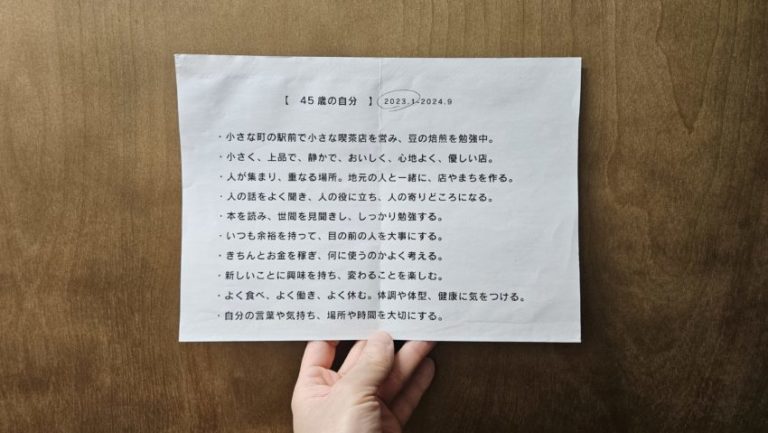 【 45歳の自分 】 2023.1-2024.9
・小さな町の駅前で小さな喫茶店を営み、豆の焙煎を勉強中。
・小さく、上品で、静かで、おいしく、心地よく、優しい店。
・人が集まり、重なる場所。地元の人と一緒に、店やまちを作る。
・人の話をよく聞き、人の役に立ち、人の寄りどころになる。
・本を読み、世間を見聞きし、しっかり勉強する。
・いつも余裕を持って、目の前の人を大事にする。
・きちんとお金を稼ぎ、何に使うのかよく考える。
・新しいことに興味を持ち、変わることを楽しむ。
・よく食べ、よく働き、よく休む。体調や体型、健康に気をつける。
・自分の言葉や気持ち、場所や時間を大切にする。